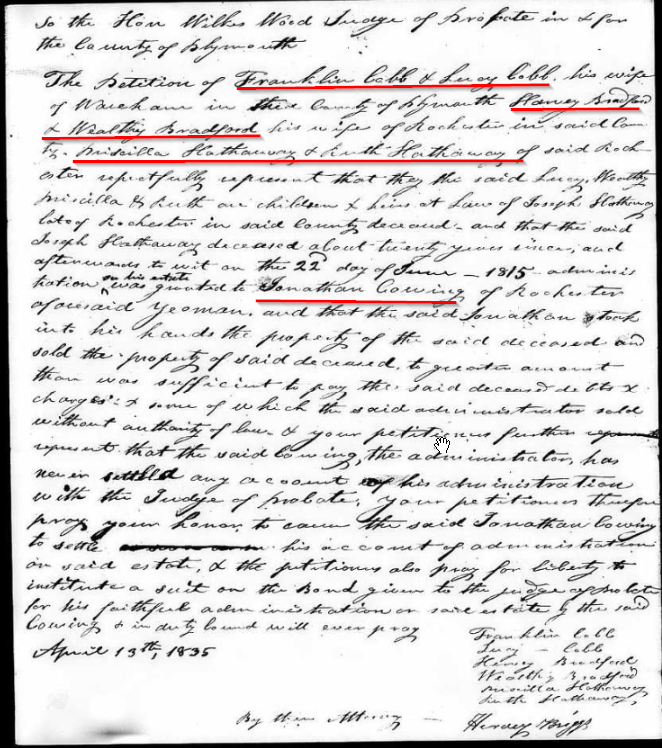 To the Hon Wilkes Wood Judge of Probate in & for
the County of Plymouth
The Petition of Franklin Cobb & Lucy Cobb, his wife
of Wareham in the County of Plymouth Harvey Bradford
& Wealthy Bradford his wife of Rochester in said Coun
ty - Priscilla Hathaway & Ruth Hathaway of said Roch
ester respectfully represent that they the said Lucy, Wealthy
Priscilla & Ruth are children & heirs at Law of Joseph Hathaway
late of Rochester in said County deceased - and that the said
Joseph Hathaway deceased about twenty years since, and
afterwards to wit on the 22d day of June - 1815 adminis
tration on his estate was granted to Jonathan Cowing of Rochester
aforesaid Yeoman, and that the said Jonathan took
into his hands the property of the said deceased and
sold the property of said deceased, to greater amount
than was sufficient to pay the said deceased debts &
charges & some of which the said administrator sold
without authority of law - & your petitioners further
represent that the said Cowing, the administrator, has
never settled any account of his administration
with the Judge of Probate, your petitioners therefore
pray your honor, to cause the said Jonathan Cowing
to settle his account of administration
on said estate, & the petitioners also pray for liberty to
institute a suit on the Bond given to the judge of probate
for his faithful administration on said estate by the said
Cowing & in duty bound will ever pray
April 13th, 1835
Franklin Cobb
Lucy - Cobb
Harvey Bradford
Wealthy Bradford
Priscilla Hathaway
Ruth Hathaway,
By their Attorney - Hervey Briggs